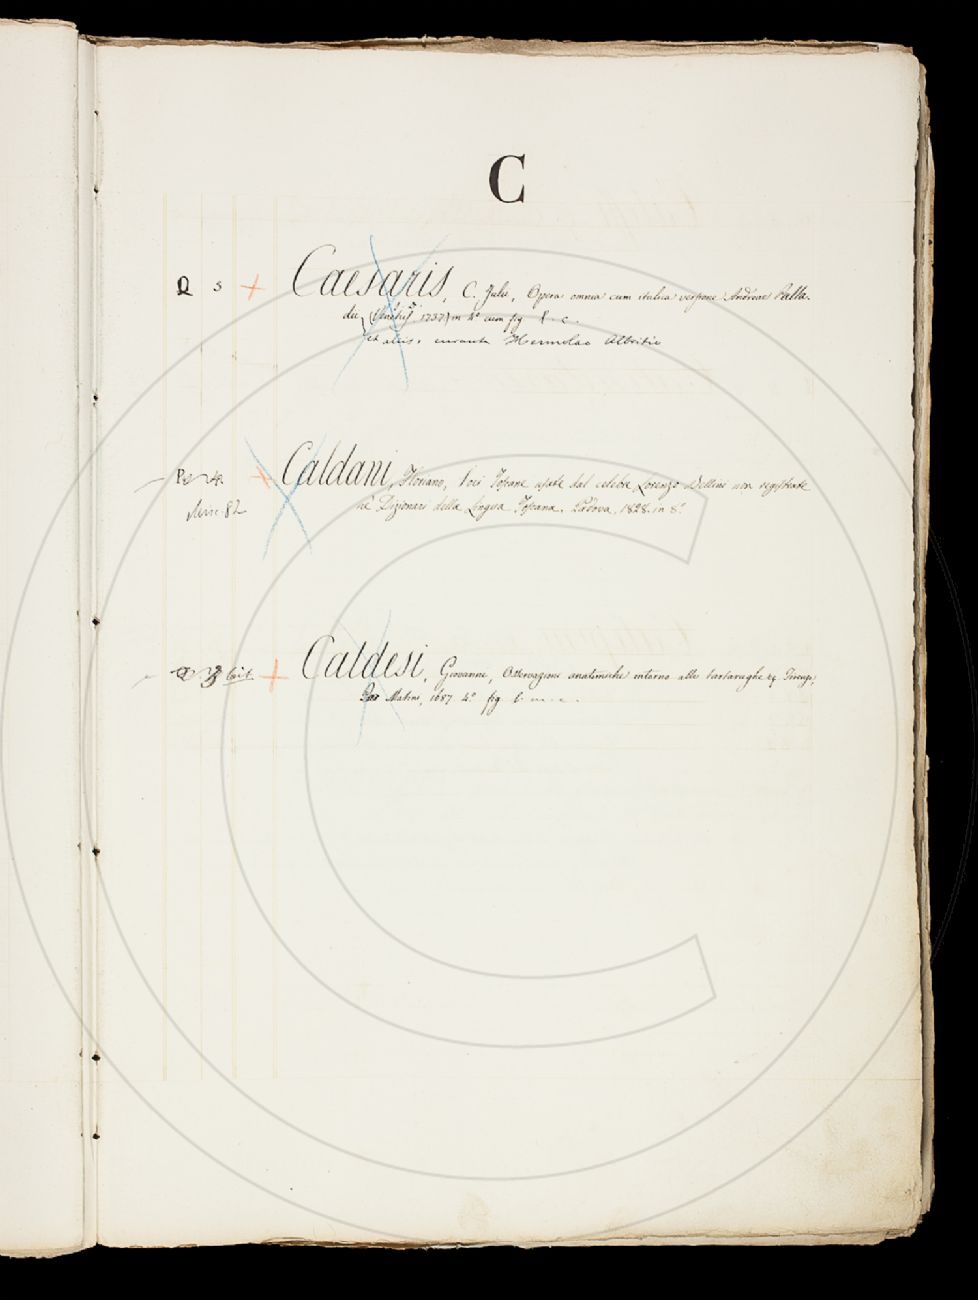 C
Q 3 + Caesaris, C. Julii, Opera omnia cum italica versione Andreae Palla-
dii, (Venetiis 1737) in 4º cum fig l. c.
et aliis, curante Hermolao Albritio
+ Caldani, Floriano, Voci Toscane usate dal celebre Lorenzo Bellini non registrate
Misc. 82 ne' Dizionari della Lingua Toscana. Padova, 1828. in 8º
3 + Caldesi, Giovanni, Osservazioni anatomiche intorno alle Tartarughe &. Firenze,
Per Matini, 1687. 4º fig l. m. c.